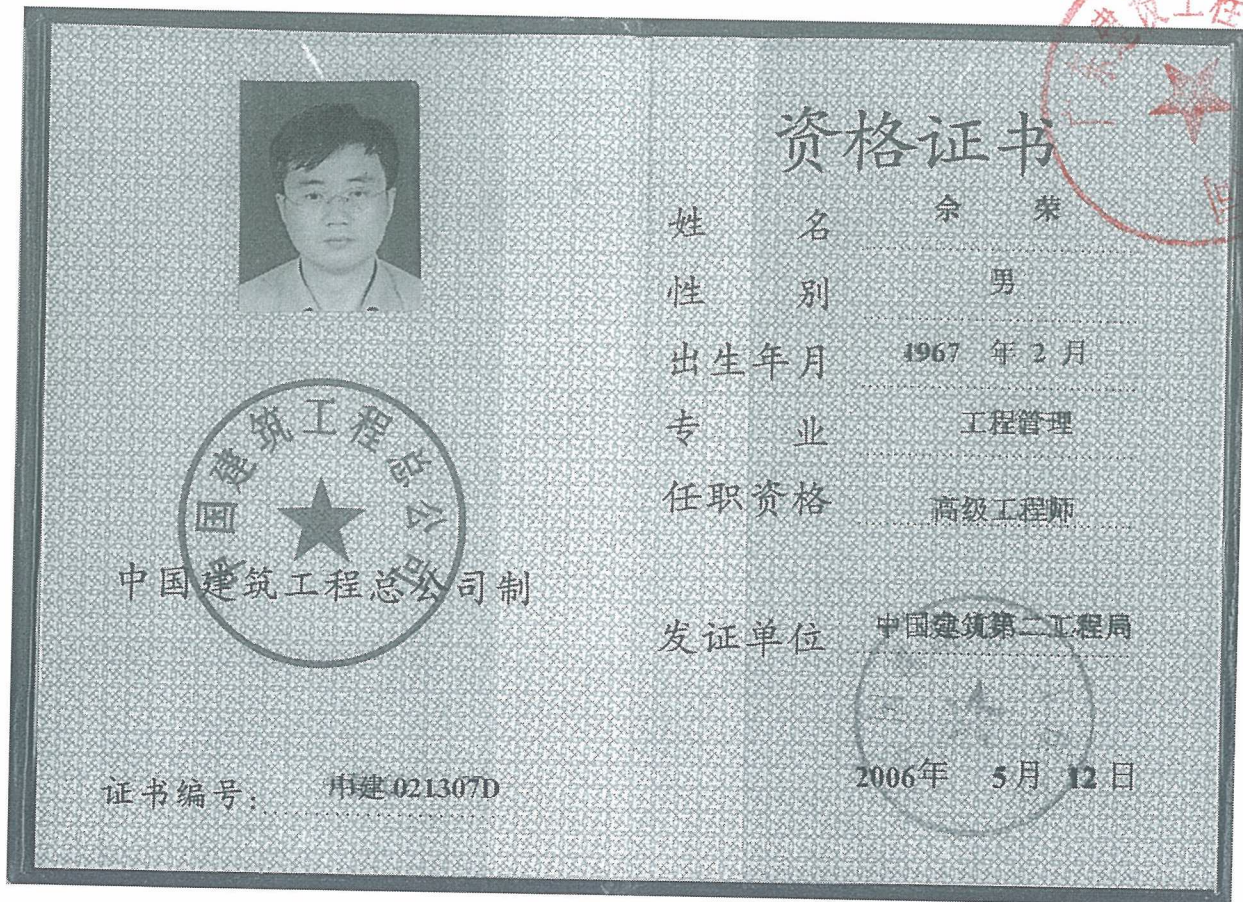 中国建筑工程总公司
中国建筑工程总公司制
证书编号：中建021307D
资格证书
姓名 余荣
性别 男
出生年月 1967年2月
专业 工程管理
任职资格 高级工程师
发证单位 中国建筑第二工程局
2006年5月12日
建筑工程